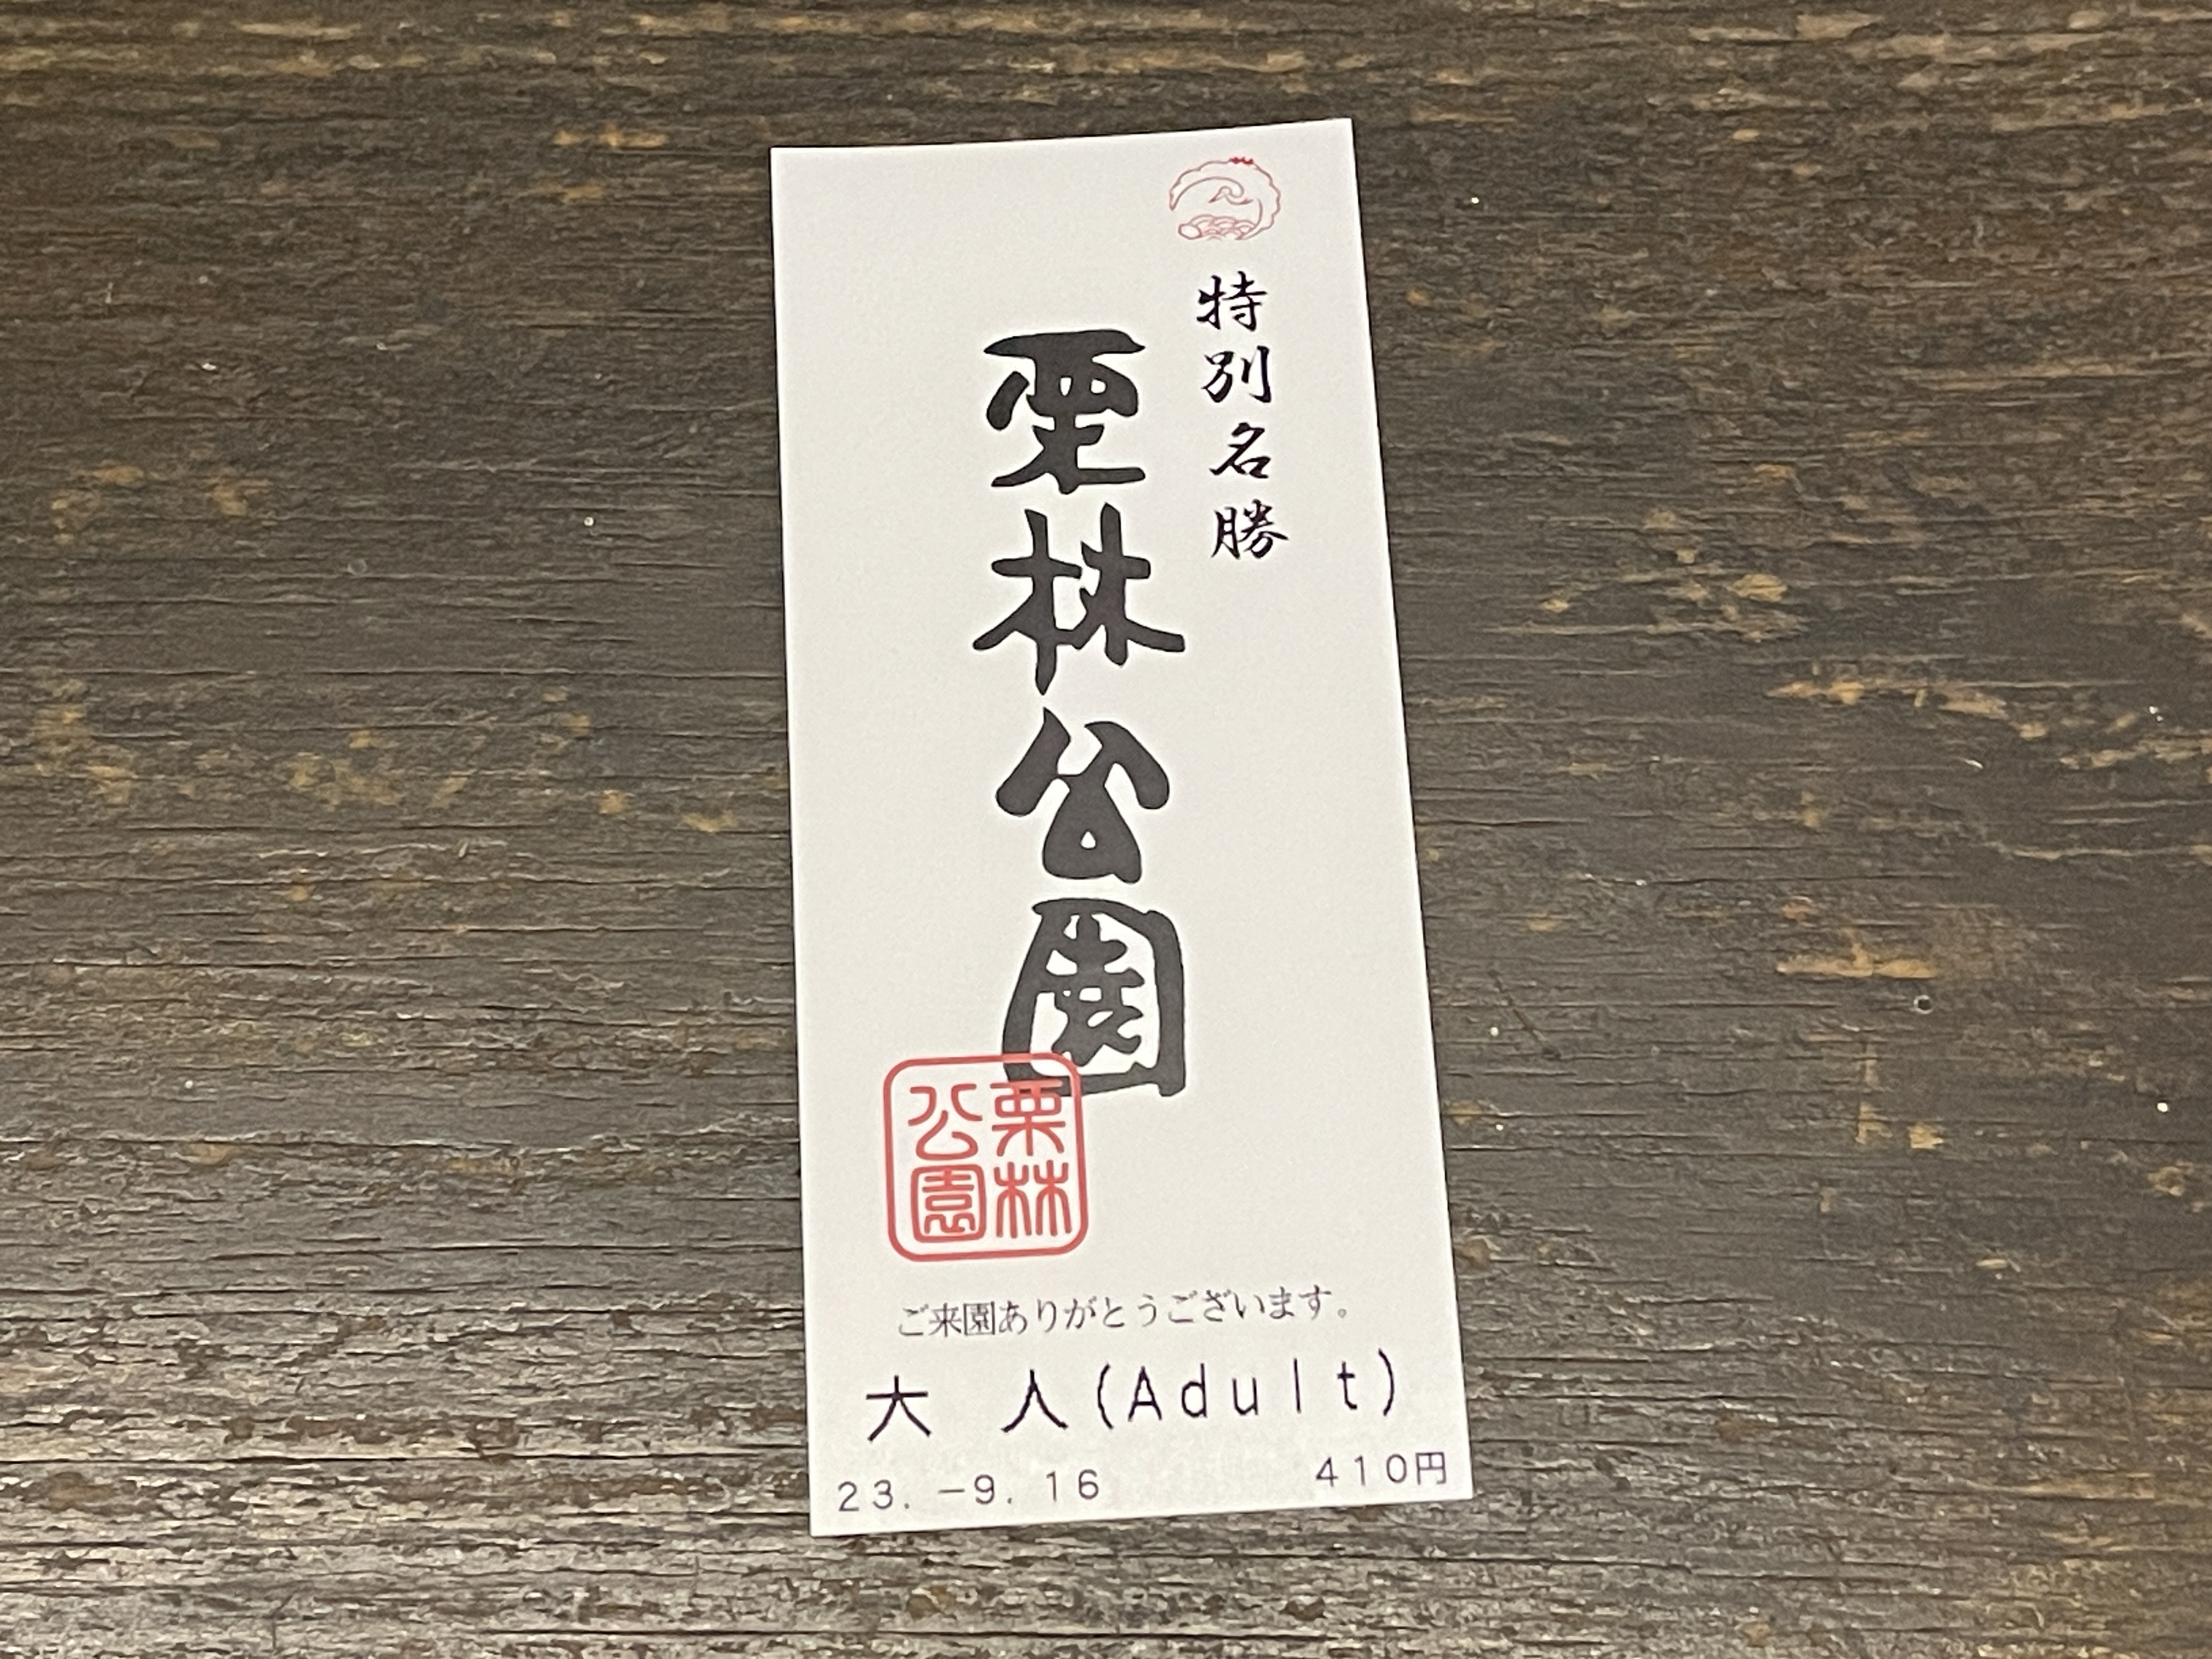 特別名勝
栗林公園
栗林
公園
ご来園ありがとうございます。
大 人(Adult)
23.-9.16 410円